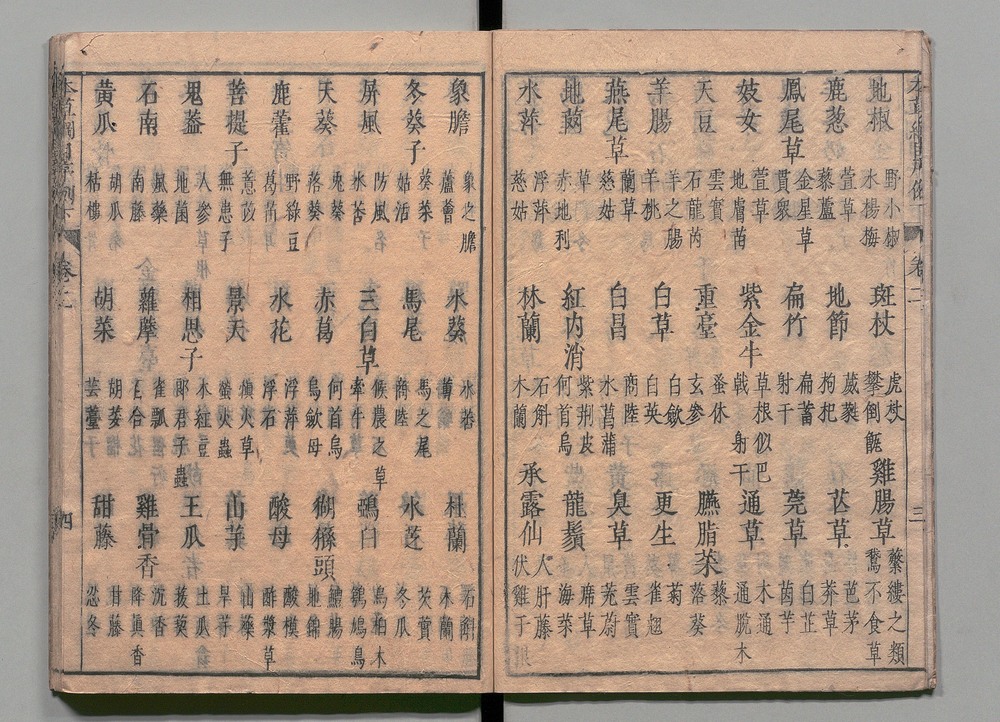 地椒 野小椒 水楊梅 斑杖 虎杖 攀倒甑 雞腸草 蘩縷之類 鵞不食草
鹿葱 萱草 藜蘆 地節 葳蕤 枸杞 苡草 芭茅 莽草
鳳尾草 金星草 貫衆 扁竹 扁蓄 射干 莞草 白芷 茵芋
妓女 萱草 地膚苗 紫金牛 草根似巴戟 射干 通草 木通 通脫木
天豆 雲實 石龍芮 重臺 蚤休 玄参 臙脂菜 藜 落葵
羊腸 羊之腸 羊桃 白草 白歛 白英 更生 菊 雀翹
燕尾草 蘭草 慈姑 白昌 商陸 水菖蒲 臭草 雲實 茺蔚
地茵 赤地利 紅内消 紫荆皮 何首烏 龍鬚 席草 海菜
水萍 浮萍 慈姑 林蘭 石斛 木蘭 承露仙 人肝藤 伏雞子根
三
象膽 象之膽 蘆薈 水葵 水莕 蓴 杜蘭 石斛 木蘭
冬葵子 葵菜子 姑活 馬尾 馬之尾 商陸 水芝 芡實 冬瓜
屏風 防風 水莕 三白草 候農之草 牽牛 鵶臼 烏桕木 鶷鵙鳥
天葵 兎葵 落葵 赤葛 何首烏 烏歛母 猢猻頭 鱧腸 地錦
鹿藿 野綠豆 葛苗 水花 浮萍 浮石 酸母 酸模 酢漿草
菩提子 薏苡 無患子 景天 慎火草 螢火蟲 山芋 山藥 旱芋
鬼蓋 人參 地菌 相思子 木紅豆 郎君子蟲 王瓜 土瓜 菝葜
石南 風藥 南藤 蘿摩 雀瓢 百合 雞骨香 沉香 降真香
黄瓜 胡瓜 栝樓 胡菜 胡荽 芸薹 甜藤 甘藤 忍冬
卷二
四